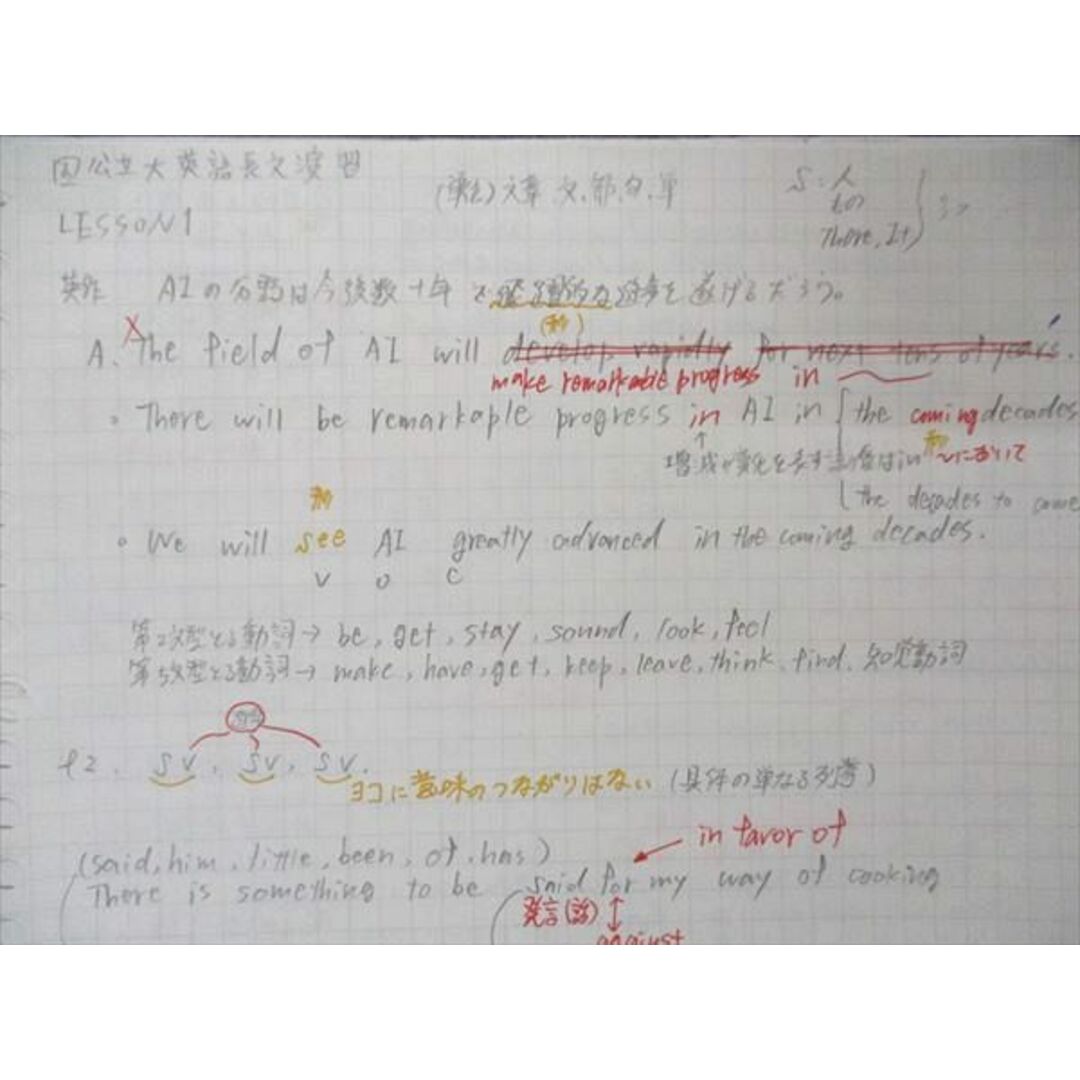 国公立大英語長文演習
(英) 文章、文、節、句、単
S:人
もの
There, It
3つ
LESSON 1
英作 AIの分野は今後数十年で飛躍的な進歩を遂げるだろう。
A. The field of AI will develop rapidly for next tens of years.
make remarkable progress in
There will be remarkaple progress in AI in the coming decades
増減や変化を表す 名は in ～において
the decades to come
We will see AI greatly advanced in the coming decades.
V O C
第2文型とる動詞→ be, get, stay, sound, look, feel
第5文型とる動詞→ make, have, get, keep, leave, think, find, 知覚動詞
P2. SV, SV, SV.
ヨコに意味のつながりはない (具体の単なる列挙)
in favor of
(said, him, little, been, of, has)
There is something to be said for my way of cooking
発言(話)
against